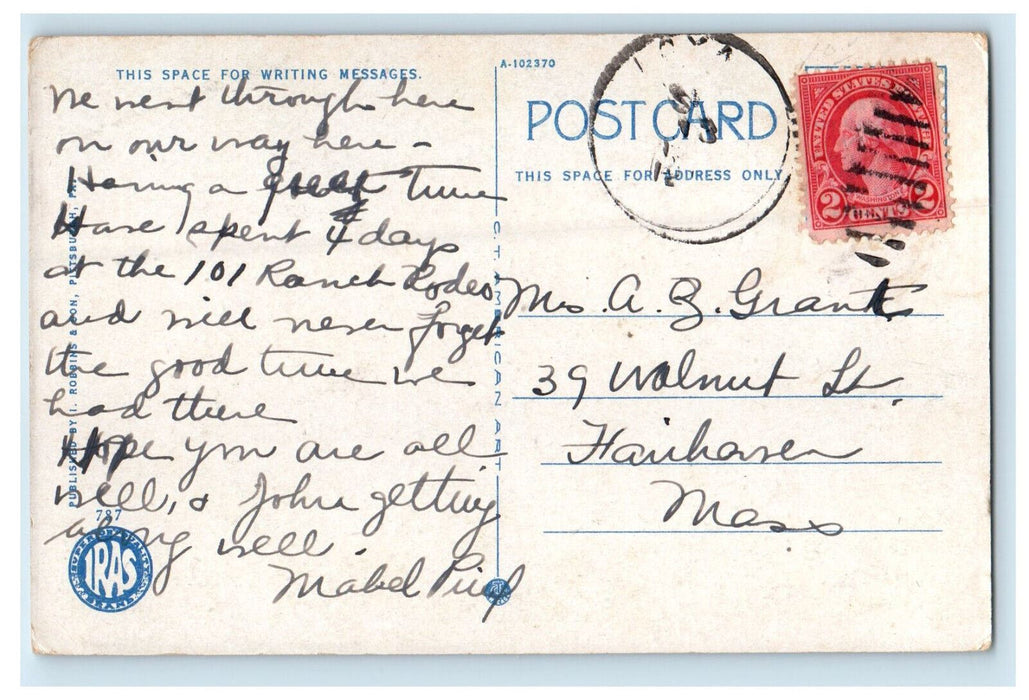 THIS SPACE FOR WRITING MESSAGES.
We went through here
on our way here -
Having a great time
Have spent 4 days
at the 101 Ranch Rodeo
and will never forget
the good time we
had there
Hope you are all
well, & John getting
along well.
Mabel
PUBLISHED BY I. ROBBINS & SON, PITTSBURGH, PA.
787
SUPERB QUALITY
IRAS
BRAND
A-102370
POST CARD
THIS SPACE FOR ADDRESS ONLY
C.T. AMERICAN ART
UNITED STATES POSTAGE
WASHINGTON
2 CENTS 2
Mrs. A. Z. Grant
39 Walnut St.
Fairhaven
Mass